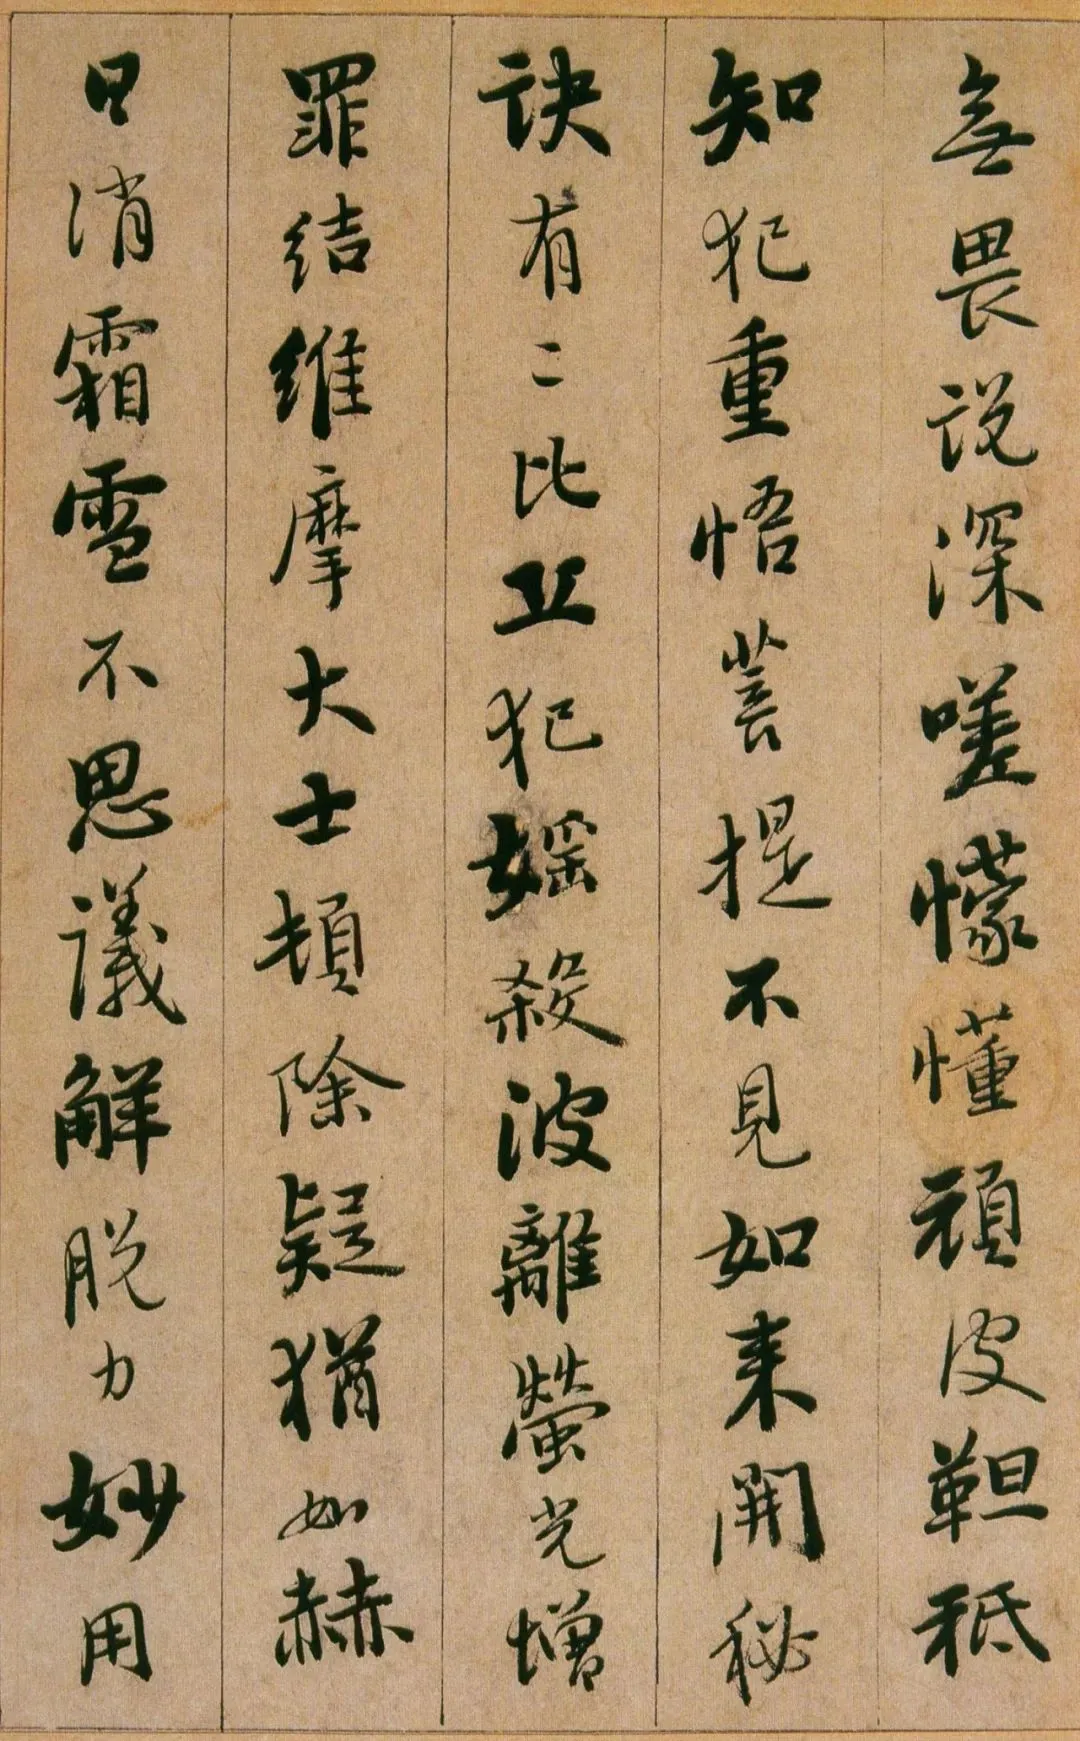 無畏説深嗟懞懂頑皮靼秪
知犯重悟菩提不見如来開秘
訣有二比丘犯婬殺波離螢光增
罪结維摩大士頓除疑猶如赫
日消霜雪不思議解脱力妙用